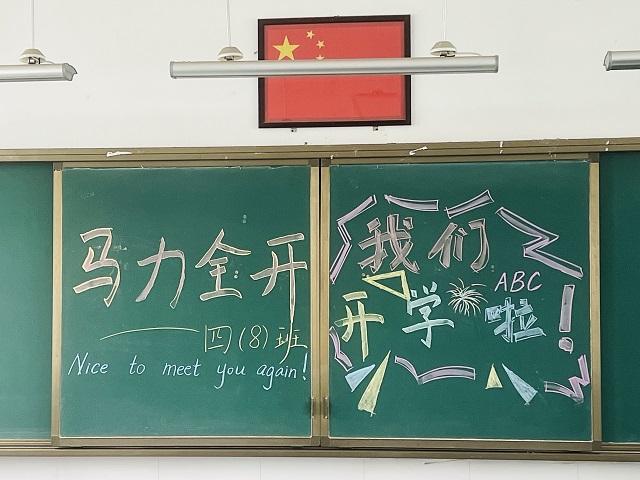 马力全开
四(8)班
Nice to meet you again!
我们
ABC
开学啦!